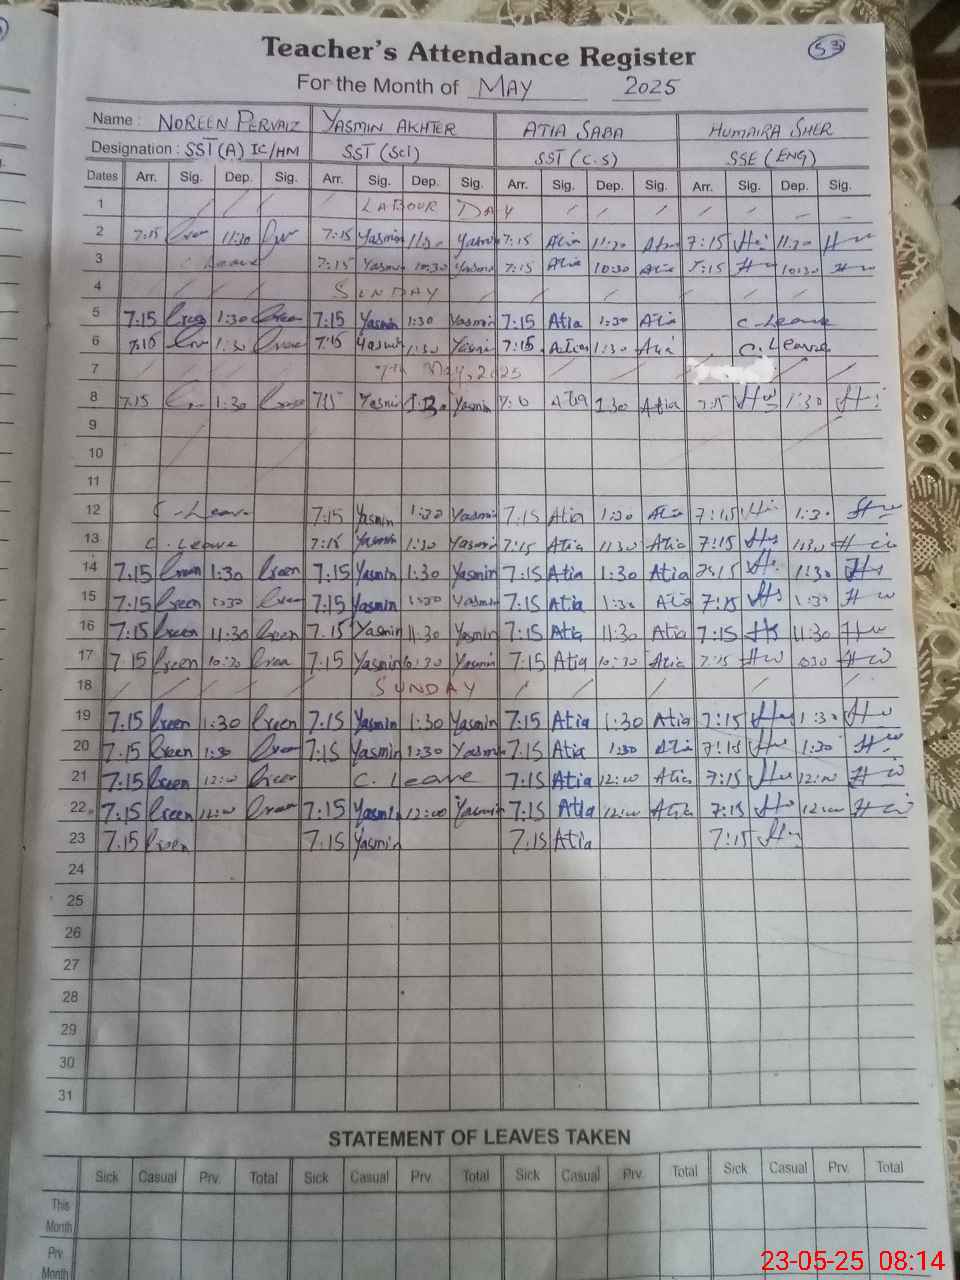 53
Teacher's Attendance Register
For the Month of MAY 2025
Name : NOREEN PERVAIZ YASMIN AKHTER ATIA SABA HUMAIRA SHER
Designation : SST(A) IC/HM SST (Sci) SST (C.S) SSE (ENG)
Dates Arr. Sig. Dep. Sig. Arr. Sig. Dep. Sig. Arr. Sig. Dep. Sig. Arr. Sig. Dep. Sig.
1 LABOUR DAY
2 7:15 11:30 7:15 Yasmin 11:30 Yasmin 7:15 Atia 11:30 Atia 7:15 11:30
3 C. Leave 7:15 Yasmin 10:30 Yasmin 7:15 Atia 10:30 Atia 7:15 10:30
4 SUNDAY
5 7:15 1:30 7:15 Yasmin 1:30 Yasmin 7:15 Atia 1:30 Atia C. Leave
6 7:10 1:30 7:15 Yasmin 1:30 Yasmin 7:15 Atia 1:30 Atia C. Leave
7 7th May, 2025
8 7:15 1:30 Yasmin Yasmin Atia 1:30 Atia 7:15 1:30
9
10
11
12 C. Leave 7:15 Yasmin 1:30 Yasmin 7:15 Atia 1:30 Atia 7:15 1:30
13 C. Leave 7:15 Yasmin 1:30 Yasmin 7:15 Atia Atia 7:15
14 7:15 1:30 7:15 Yasmin 1:30 Yasmin 7:15 Atia 1:30 Atia 1:30
15 7:15 1:30 7:15 Yasmin 1:30 Yasmin 7:15 Atia 1:30 Atia 7:15 1:30
16 7:15 11:30 7:15 Yasmin 11:30 Yasmin 7:15 Atia 11:30 Atia 7:15 11:30
17 7:15 10:30 7:15 Yasmin 10:30 Yasmin 7:15 Atia 10:30 Atia 7:15 1030
18 SUNDAY
19 7:15 1:30 7:15 Yasmin 1:30 Yasmin 7:15 Atia 1:30 Atia 7:15 1:30
20 7:15 1:30 7:15 Yasmin 1:30 Yasmin 7:15 Atia 1:30 Atia 7:15 1:30
21 7:15 12:00 C. Leave 7:15 Atia 12:00 Atia 7:15 12:00
22 7:15 12:00 7:15 Yasmin 12:00 Yasmin 7:15 Atia 12:00 Atia 7:15 12:00
23 7:15 7:15 Yasmin 7:15 Atia 7:15
24
25
26
27
28
29
30
31
STATEMENT OF LEAVES TAKEN
Sick Casual Prv. Total Sick Casual Prv Total Sick Casual Prv. Total Sick Casual Prv. Total
This
Month
Prv.
Month
23-05-25 08:14